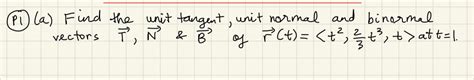 (P1) (a) Find the unit tangent, unit normal and binormal
vectors T⃗, N⃗ & B⃗ of r⃗(t) = <t², 2/3 t³, t> at t=1.